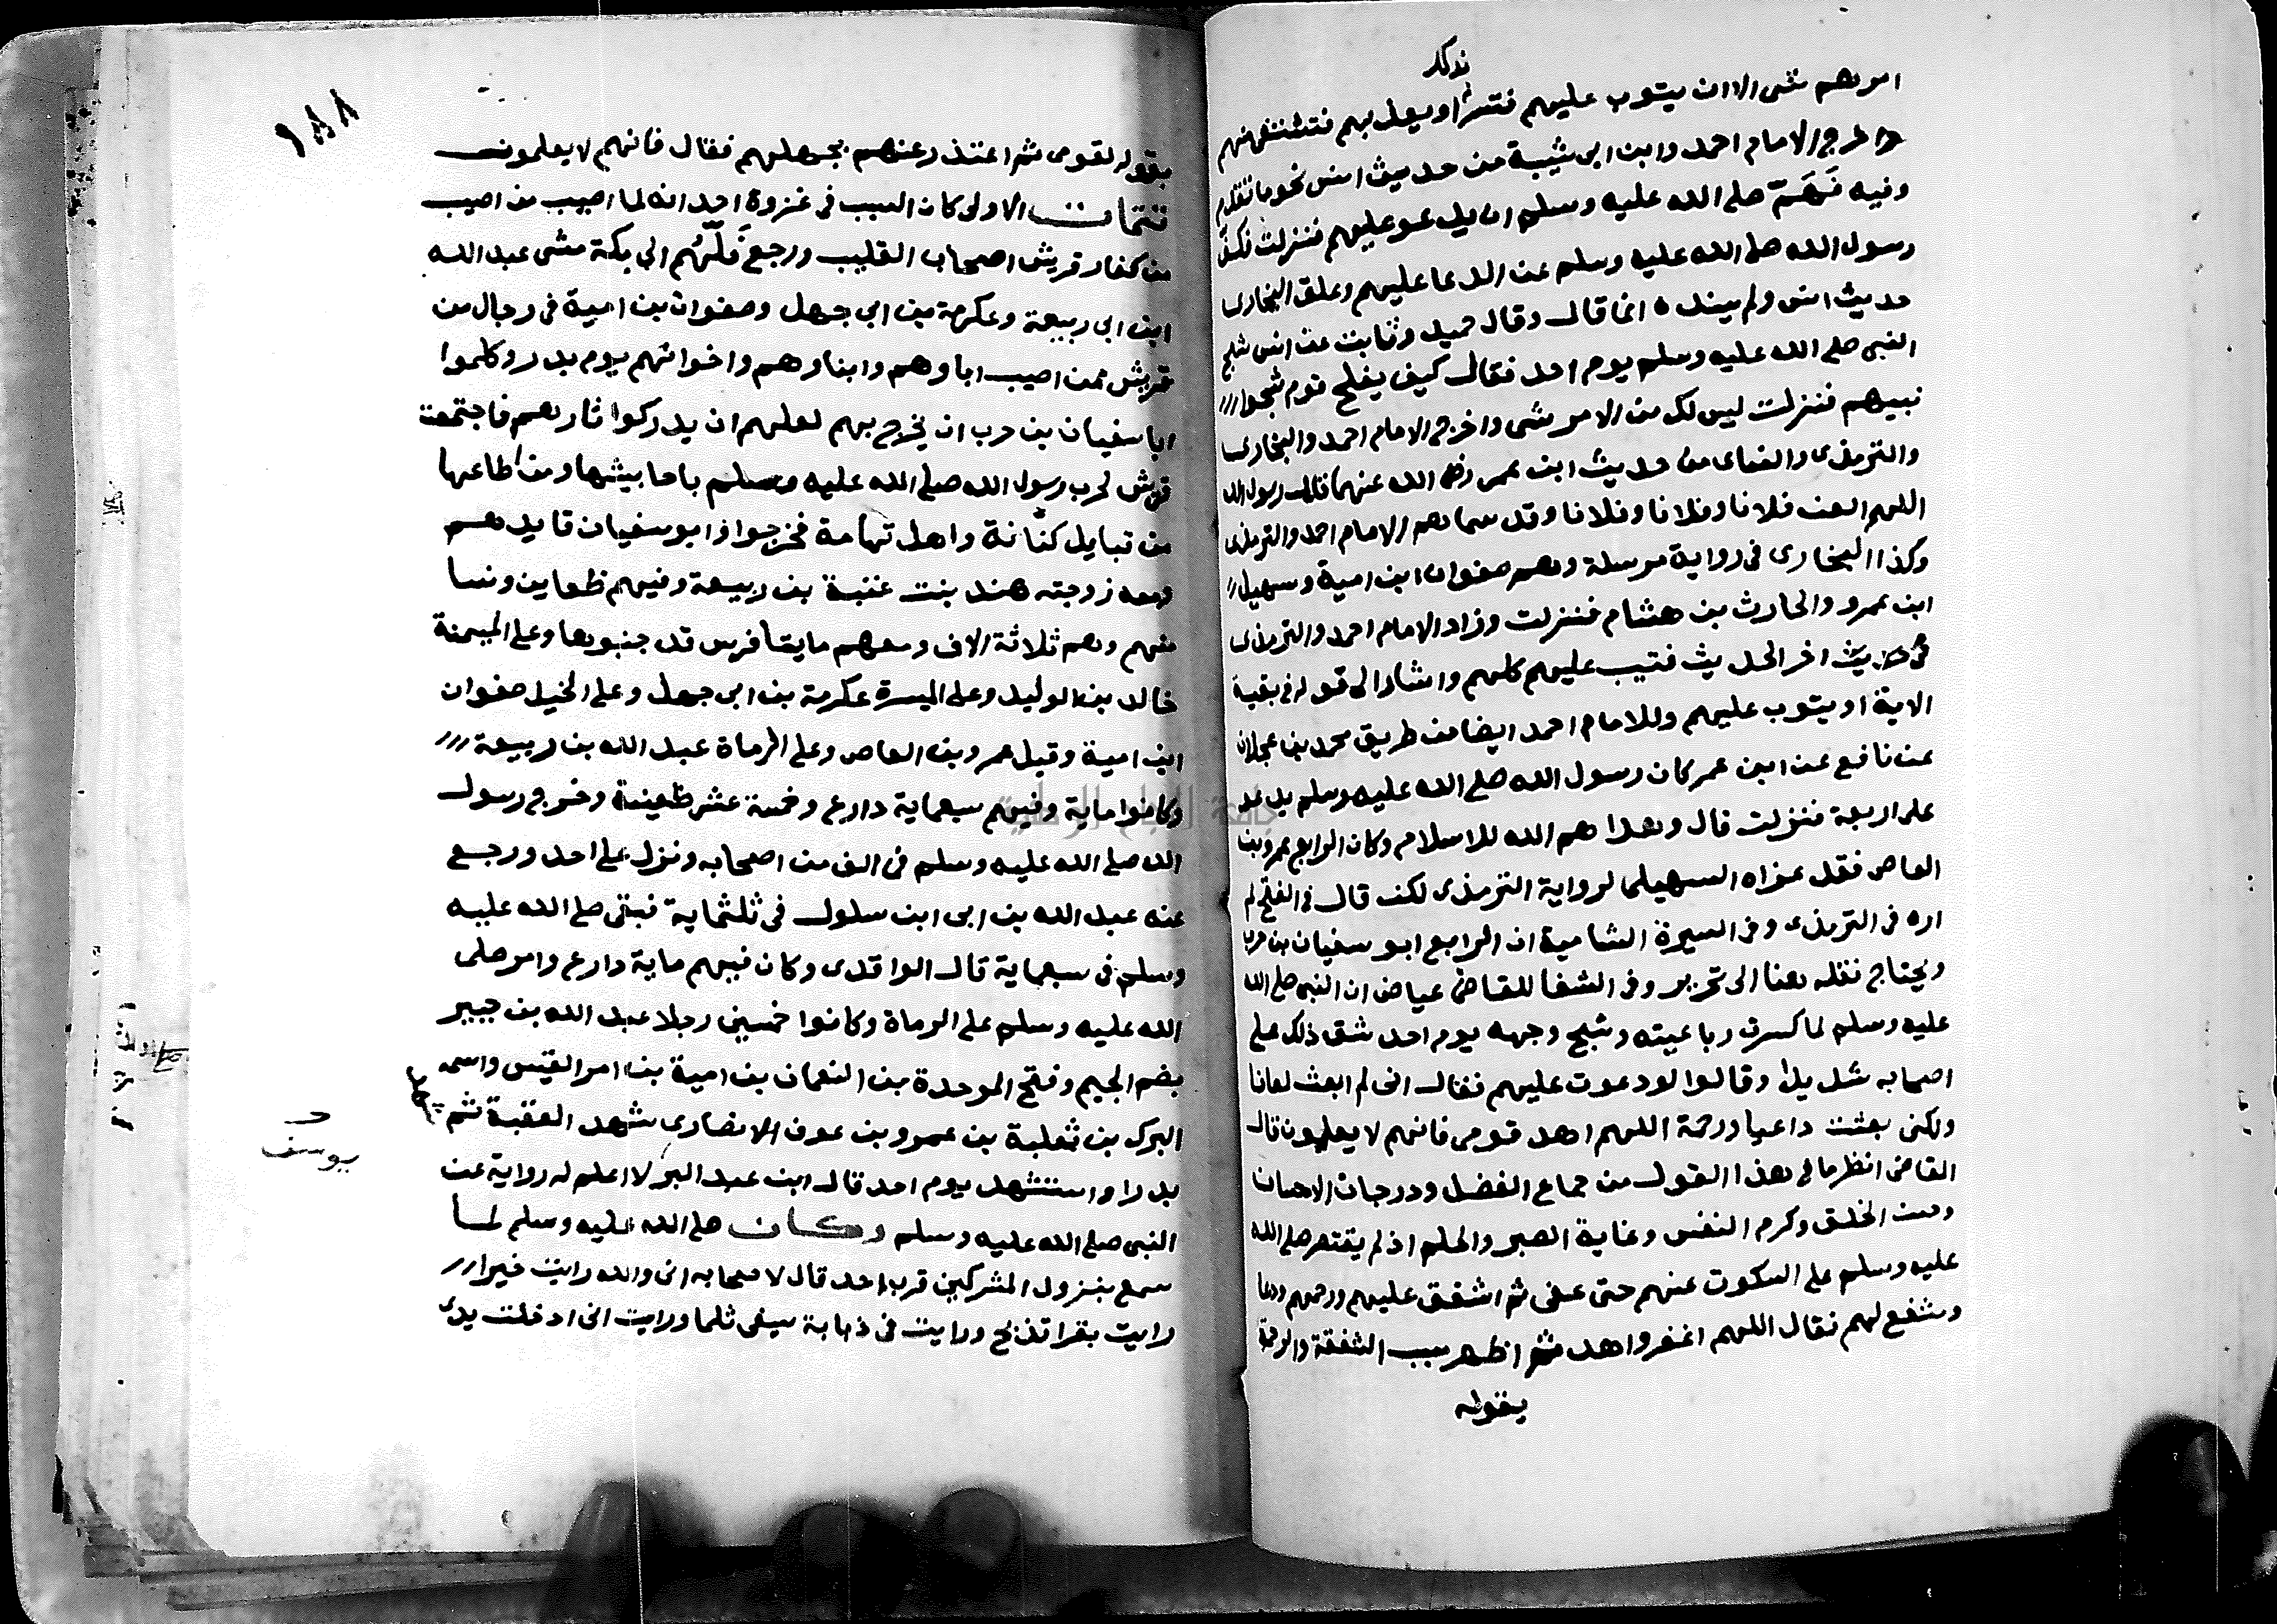 بذلك
امرهم شي الا ان يتوب عليهم فتسر او يعذبهم فتشتفي منهم
واخرج الامام احمد وابن ابي شيبة من حديث انس نحو ما تقدم
وفيه فَهَمّ صلى الله عليه وسلم ان يدعو عليهم فنزلت فكفّ
رسول الله صلى الله عليه وسلم عن الدعا عليهم وعلق البخارى
حديث انس ولم يسنده انما قال وقال حميد وثابت عن انس شج
النبي صلى الله عليه وسلم يوم احد فقال كيف يفلح قوم شجوا
نبيهم فنزلت ليس لك من الامر شي واخرج الامام احمد والبخارى
والترمذى والنساى من حديث ابن عمر رضى الله عنهما قال رسول الله
اللهم العن فلانا وفلانا وفلانا وقد سماهم الامام احمد والترمذى
وكذا البخارى في رواية مرسلة وهم صفوان ابن امية وسهيل
ابن عمرو والحارث بن هشام فنزلت وزاد الامام احمد والترمذى
في حديث اخر الحديث فتيب عليهم كلهم واشار الى قوله في بقية
الاية او يتوب عليهم وللامام احمد ايضا من طريق محمد بن عجلان
عن نافع عن ابن عمر كان رسول الله صلى الله عليه وسلم يدعو
على اربعة فنزلت قال وهداهم الله للاسلام وكان الرابع عمرو بن
العاص فقد عزاه السهيلى لرواية الترمذى لكن قال في الفتح لم
اره في الترمذى وفي السيرة الشامية ان الرابع ابو سفيان بن حرب
ويحتاج نقله هنا الى تحرير وفي الشفا للقاضي عياض ان النبي صلى الله
عليه وسلم لما كسرت رباعيته وشج وجهه يوم احد شق ذلك على
اصحابه شديدا وقالوا لو دعوت عليهم فقال انى لم ابعث لعانا
ولكنى بعثت داعيا ورحمة اللهم اهد قومى فانهم لا يعلمون قال
القاضى انظر ما في هذا القول من جماع الفضل ودرجات الاحسان
وحسن الخلق وكرم النفس وغاية الصبر والحلم اذ لم يقتصر صلى الله
عليه وسلم على السكوت عنهم حتى عفى ثم اشفق عليهم ورحمهم ودعا
وشفع لهم فقال اللهم اغفر واهد ثم اظهر سبب الشفقة والرحمة
بقوله
١٨٨
بقوله لقومى ثم اعتذر عنهم بجهلهم فقال فانهم لا يعلمون
تتمات الاولى كان السبب في غزوة احد انه لما اصيب من اصيب
من كفار قريش اصحاب القليب ورجع فَلّهُم الى مكة مشى عبد الله
ابن ابي ربيعة وعكرمة بن ابي جهل وصفوان بن امية في رجال من
قريش ممن اصيب اباوهم وابناوهم واخوانهم يوم بدر وكلموا
ابا سفيان بن حرب ان يخرج بهم لعلهم ان يدركوا ثارهم فاجتمعت
قريش لحرب رسول الله صلى الله عليه وسلم باحابيشها ومن اطاعها
من قبايل كنانة واهل تهامة فخرجوا وابو سفيان قايدهم
ومعه زوجته هند بنت عتبة بن ربيعة وفيهم ظعاين ونسا
منهم وهم ثلاثة الاف ومعهم مايتا فرس قد جنبوها وعلى الميمنة
خالد بن الوليد وعلى الميسرة عكرمة بن ابي جهل وعلى الخيل صفوان
ابن امية وقيل عمرو بن العاص وعلى الرماة عبد الله بن ربيعة
وكانوا ماية وفيهم سبعماية دارع وخمسة عشر ظعينة وخرج رسول
الله صلى الله عليه وسلم في الف من اصحابه ونزل على احد ورجع
عنه عبد الله بن ابى ابن سلول في ثلثماية فبقى صلى الله عليه
وسلم في سبعماية قال الواقدى وكان فيهم ماية دارع وامر صلى
الله عليه وسلم على الرماة وكانوا خمسين رجلا عبد الله بن جبير
بضم الجيم وفتح الموحدة بن النعمان بن امية بن امر القيس واسمه
البرك بن ثعلبة بن عمرو بن عوف الانصارى شهد العقبة ثم
بدرا واستشهد يوم احد قال ابن عبد البر لا اعلم له رواية عن
النبي صلى الله عليه وسلم وكان صلى الله عليه وسلم لما
سمع بنزول المشركين قرب احد قال لاصحابه انى والله رايت خيرا
رايت بقرا تذبح ورايت في ذبابة سيفى ثلما ورايت انى ادخلت يدى
يوسف